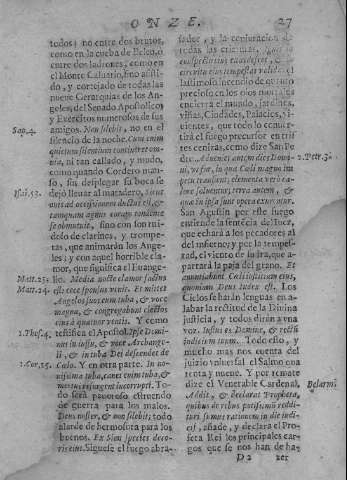 ONZE. 27
todos; no entre dos brutos,
como en la cueba de Belen, ò
entre dos ladrones, como en
el Monte Caluario, sino assisti-
do, y cortejado de todas las
nueve Gerarquias de los An-
geles, del Senado Apostolico,
y Exercitos numerosos de sus
Sap. 4. amigos. Non silebit, no en el
silencio de la noche. Cum enim
quietum silentium continerent om-
nia, ni tan callado, y mudo,
como quando Cordero man-
so, sin desplegar su boca se
Isai. 53. dejò llevar al matadero, Sicut
ovis ad occisionem ductus est, &
tamquam agnus coram tondente
se obmutuit, sino con son rui-
doso de clarines, y trompe-
tas, que animaràn los Ange-
les; y con aquel horrible cla-
mor, que significa el Euange-
Matt. 25. lio. Media nocte clamor factus
Matt. 24. est: ecce sponsus venit. Et mittet
Angelos suos cum tuba, & voce
magna, & congregabunt electos
eius à quatuor ventis. Y como
1. Thes. 4. testifica el Apostol. Ipse Domi-
nus in iussu, & voce Archange-
li, & in tuba Dei descendet de
1. Cor. 15. Cælo. Y en otra parte. In no-
vissima tuba, canet enim tuba, &
mortui resurgent incorrupti. To-
do serà pavoroso estruendo
de guerra para los malos.
Deus noster, & non silebit; todo
alarde de hermosura para los
buenos. Ex Sion species deco-
ris eius. Siguese el fuego abra-
sador, y la conjuracion de
todas las criaturas, Ignis in
conspectu eius exardescet, & in
circuitu eius tempestas valida. Y
lisonjero incendio de quanto
precioso en los ojos mortales
encierra el mundo, jardines,
viñas, Ciudades, Palacios, vi-
vientes, que todo lo conuer-
tirà el fuego precursor en tris-
tes cenizas, como dize San Pe-
2. Petr. 3. dro. Adveniet autem dies Domi-
ni, ut fur, in qua Cæli magno im-
petu transient, elementa verò ca-
lore solventur, terra autem, &
quæ in ipsa sunt opera exurentur.
San Agustin por este fuego
entiende la sentencia del Iuez,
que echarà à los pecadores al
del infierno; y por la tempes-
tad, el viento de su Ira, que a-
partarà la paja del grano. Et
annuntiabunt Cæli iustitiam eius,
quoniam Deus Iudex est. Los
Cielos se haràn lenguas en a-
labar la rectitud de la Divina
justicia, y todos diràn à vna
voz. Iustus es Domine, & rectum
iudicium tuum. Todo esto, y
mucho mas nos cuenta del
juizio vniversal el Salmo qua-
renta y nueve. Y por remate
dize el Venerable Cardenal, Belarmi.
Addit, & declarat Propheta,
quibus de rebus potissimum reddi-
turi sumus rationem in die indi-
cij, añade, y declara el Pro-
feta Rei los principales car-
gos que se nos han de ha-
D 2 zer